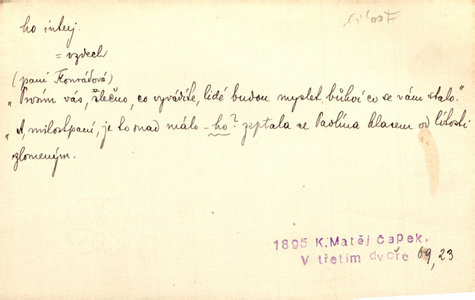 lítost
ho interj.
= vzdech
(paní Konrádová)
„Prosím vás, slečno, co vyvádíte, lidé budou myslet bůhví co se vám stalo."
„A, milostpaní, je to snad málo – ho? zeptala se Pavlína hlasem od lítosti
zlomeným.
1895 K.Matěj Čapek,
V třetím dvoře 69, 23